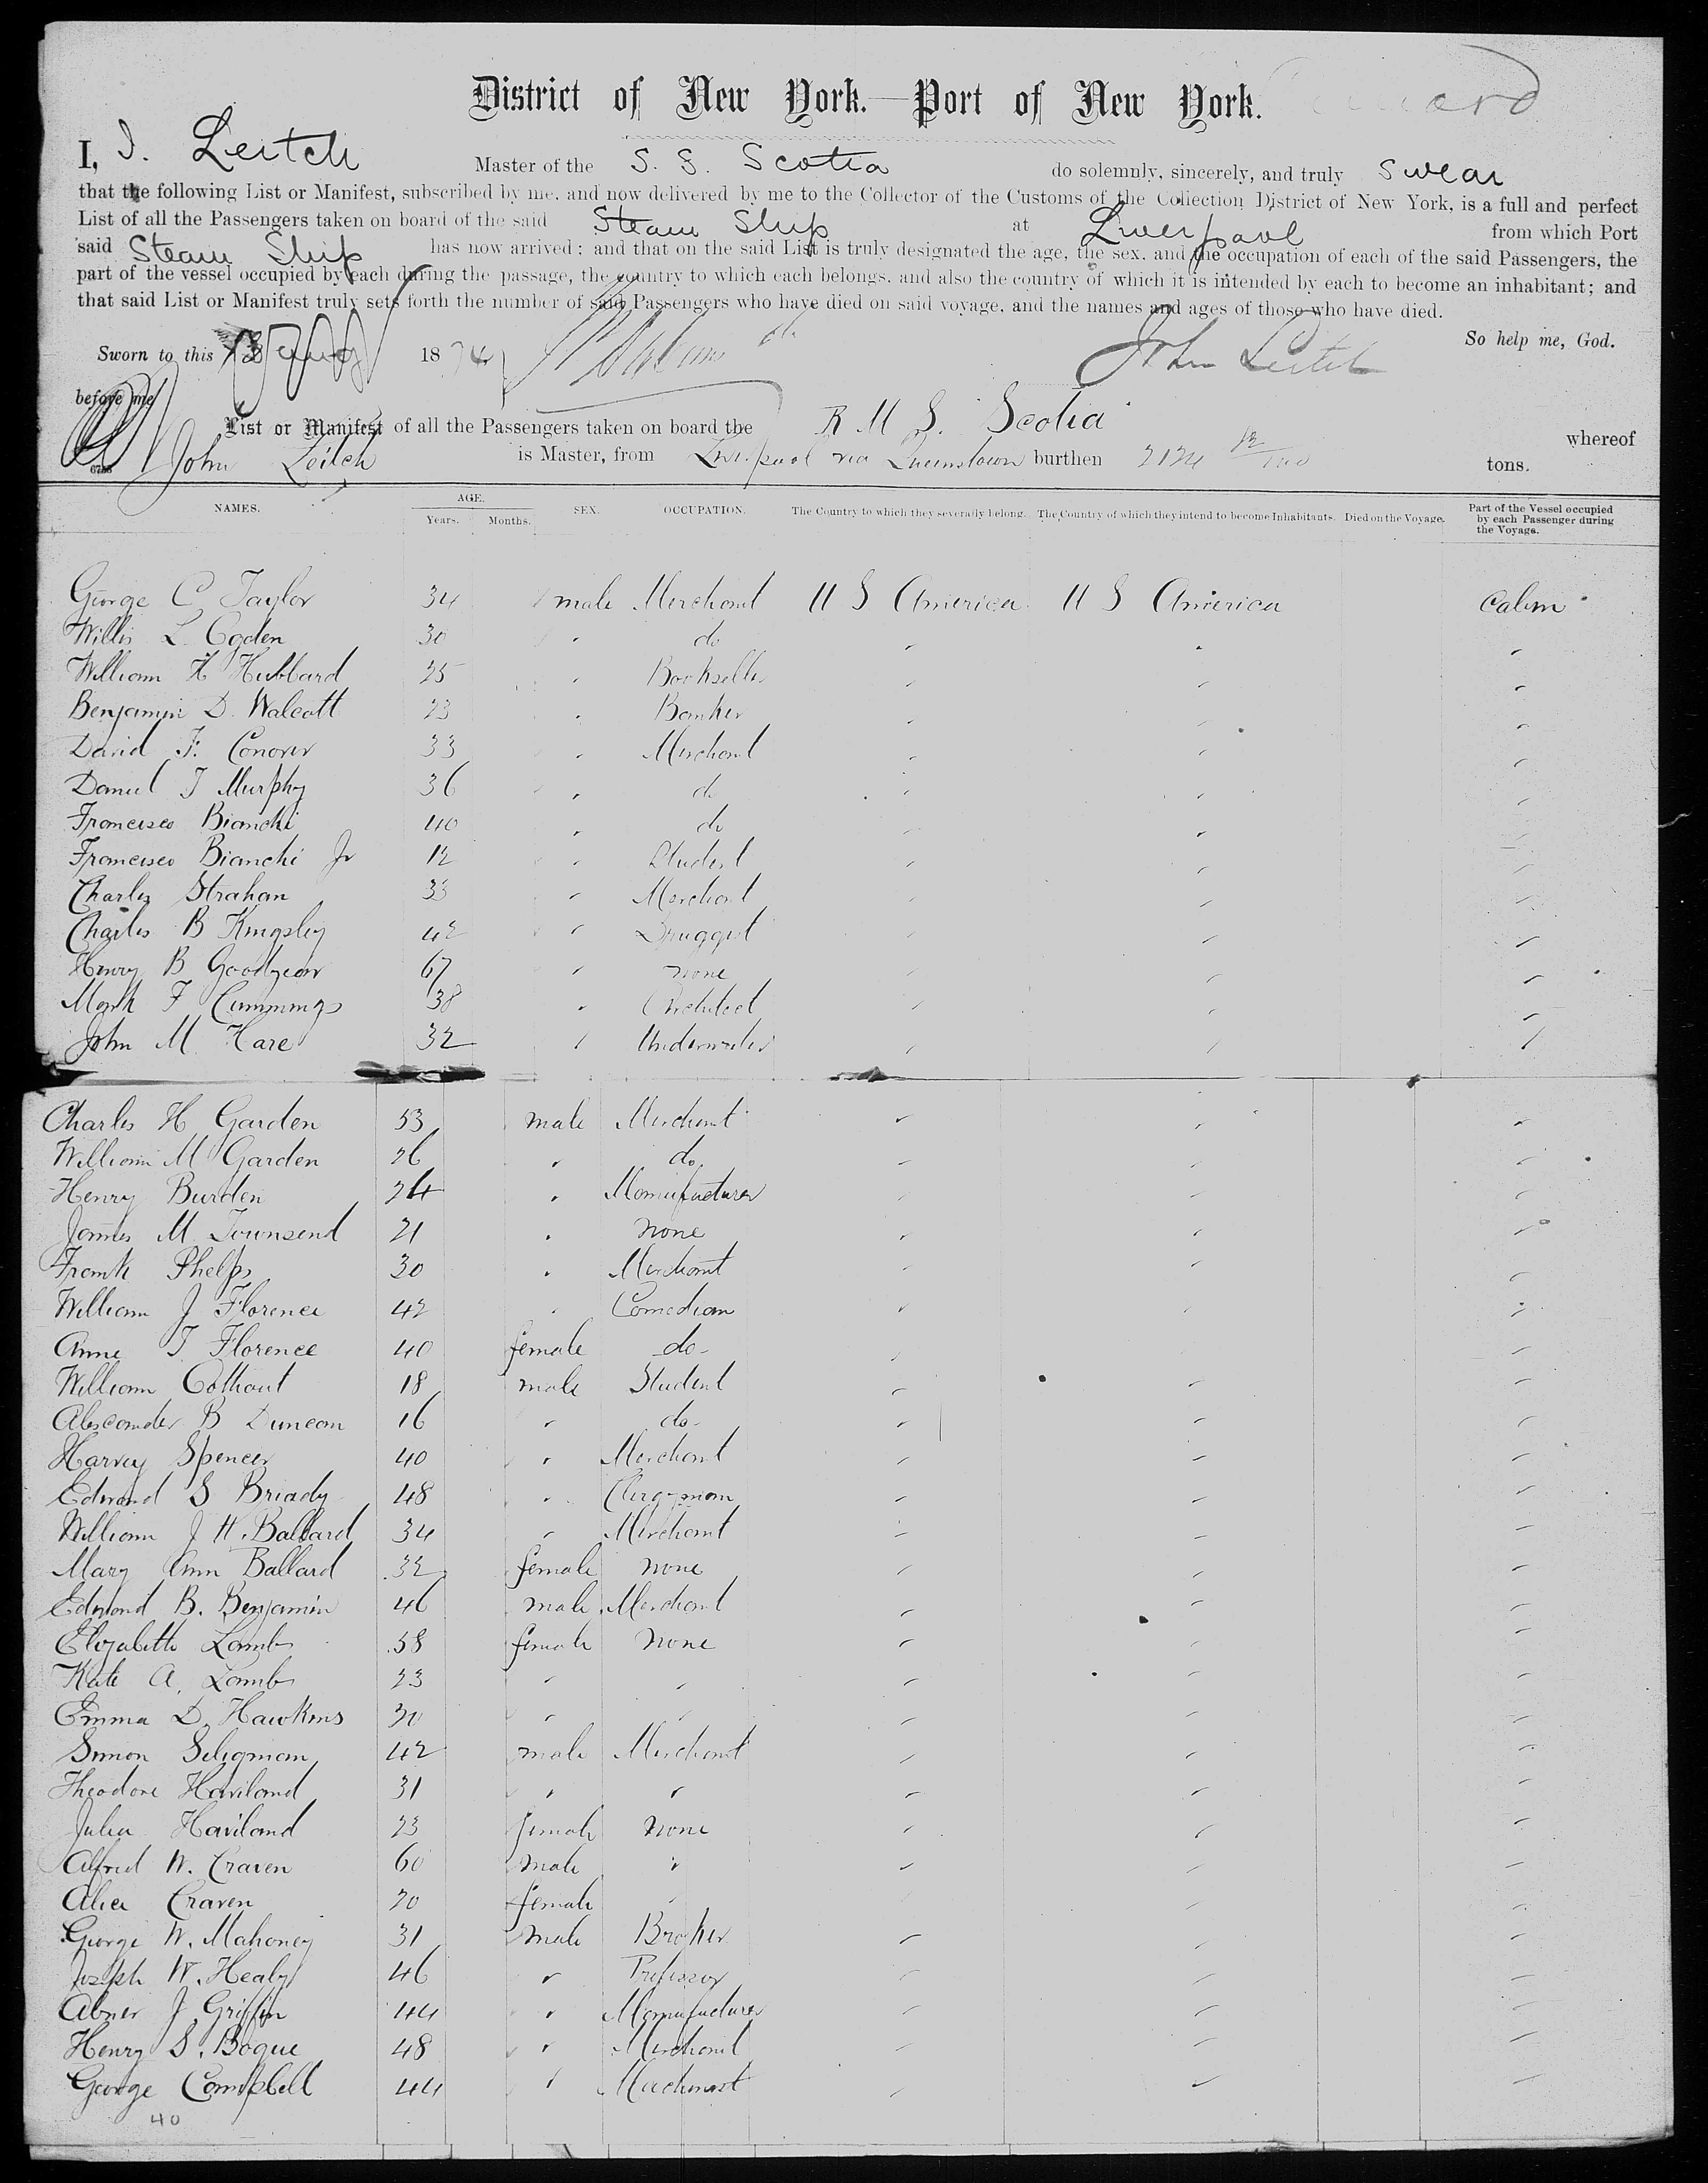 District of New York.—Port of New York.
I, J. Leitch Master of the S. S. Scotia do solemnly, sincerely, and truly Swear
that the following List or Manifest, subscribed by me, and now delivered by me to the Collector of the Customs of the Collection District of New York, is a full and perfect
List of all the Passengers taken on board of the said Steam Ship at Liverpool from which Port
said Steam Ship has now arrived; and that on the said List is truly designated the age, the sex, and the occupation of each of the said Passengers, the
part of the vessel occupied by each during the passage, the country to which each belongs, and also the country of which it is intended by each to become an inhabitant; and
that said List or Manifest truly sets forth the number of said Passengers who have died on said voyage, and the names and ages of those who have died.
So help me, God.
Sworn to this Aug 1874 John Leitch
before me
List or Manifest of all the Passengers taken on board the R M S. Scotia whereof
John Leitch is Master, from Liverpool via Queenstown burthen 2124 12/100 tons.
NAMES. AGE. Years. Months. SEX. OCCUPATION. The Country to which they severally belong. The Country of which they intend to become Inhabitants. Died on the Voyage. Part of the Vessel occupied by each Passenger during the Voyage.
George C Taylor 34 male Merchant U S America U S America Cabin
Willis L. Ogden 30 " do " " "
William H Hubbard 25 " Bookseller " " "
Benjamin D. Walcott 23 " Banker " " "
David F. Conover 33 " Merchant " " "
Daniel T Murphy 36 " do " " "
Francisco Bianchi 40 " do " " "
Francisco Bianchi Jr 12 " Student " " "
Charles Strahan 33 " Merchant " " "
Charles B Kingsley 42 " Druggist " " "
Henry B Goodyear 67 " none " " "
Mark F Cummings 38 " Architect " " "
John M. Hare 32 " Underwriter " " "
Charles H Garden 53 male Merchant " " "
William M Garden 26 " do. " " "
Henry Burden 24 " Manufacturer " " "
James M Townsend 21 " none " " "
Frank Phelps 30 " Merchant " " "
William J Florence 42 " Comedian " " "
Anne T Florence 40 female do " " "
William Oothout 18 male Student " " "
Alexander B Duncan 16 " do " " "
Harvey Spencer 40 " Merchant " " "
Edward S Briady 48 " Clergyman " " "
William J H. Ballard 34 " Merchant " " "
Mary Ann Ballard 32 female none " " "
Edmond B. Benjamin 46 male Merchant " " "
Elizabeth Lamb 58 female none " " "
Kate A. Lamb 23 " " " " "
Emma D. Hawkins 30 " " " " "
Simon Seligman 42 male Merchant " " "
Theodore Haviland 31 " " " " "
Julia Haviland 23 female none " " "
Alfred W. Craven 60 male " " " "
Alice Craven 20 female " " " "
George W. Mahoney 31 male Broker " " "
Joseph W. Healy 46 " Professor " " "
Abner J Griffin 44 " Manufacturer " " "
Henry S. Bogue 48 " Merchant " " "
George Campbell 44 " Merchant " " "
40